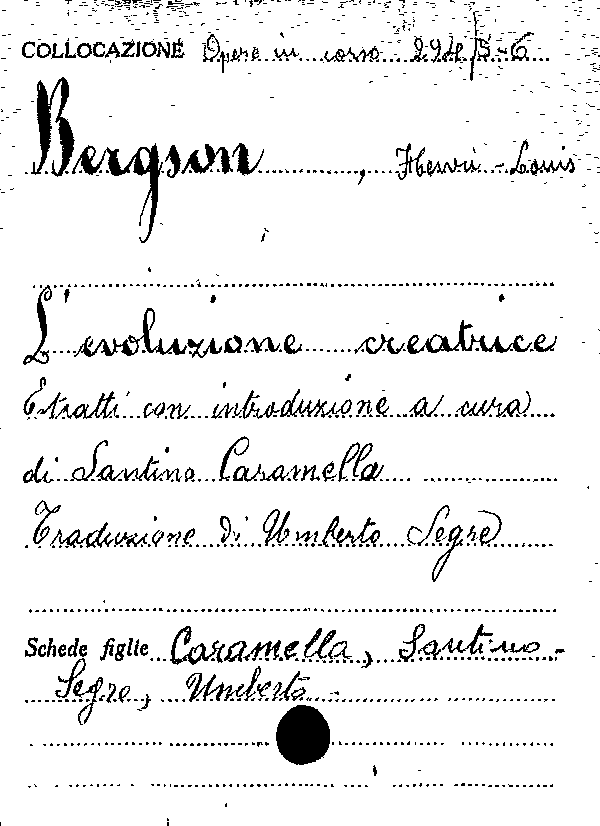 COLLOCAZIONE Opere in corso 294/5-6
Bergson, Henri-Louis
L'evoluzione creatrice
Estratti con introduzione a cura
di Santino Caramella
Traduzione di Umberto Segre
Schede figlie Caramella, Santino -
Segre, Umberto -